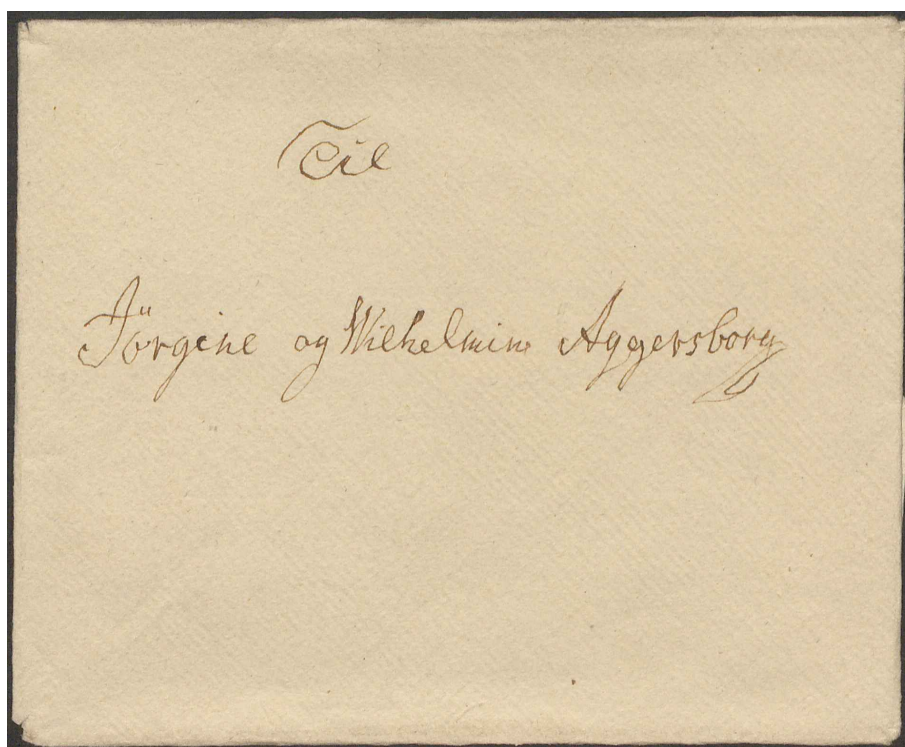 Til
Jörgine og Wilhelmine Aggersborg